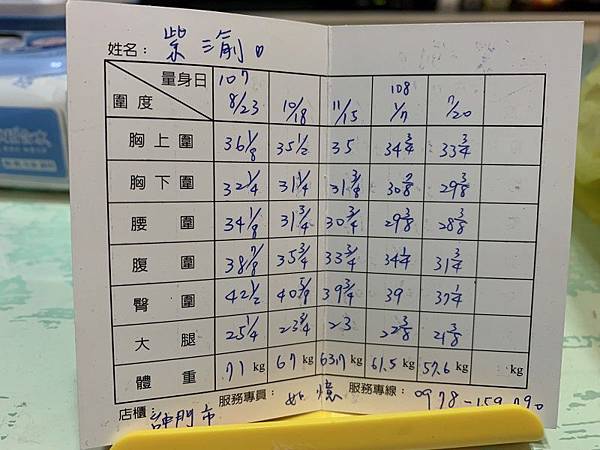 姓名： 紫渝
量身日 107 8/23 10/18 11/15 108 1/7 7/20
圍度
胸上圍 36 1/8 35 1/2 35 34 3/4 33 3/4
胸下圍 32 1/4 31 1/4 31 3/8 30 7/8 29 3/8
腰圍 34 1/8 31 3/4 30 3/4 29 3/8 28 3/8
腹圍 38 7/8 35 3/4 33 3/4 34 1/4 31 3/4
臀圍 42 1/2 40 5/8 39 3/4 39 37 1/4
大腿 25 1/4 23 3/4 23 22 3/8 21 3/8
體重 71 kg 67 kg 63.7 kg 61.5 kg 57.6 kg kg
店櫃 門市 服務專員： 如憶 服務專線： 0978-159